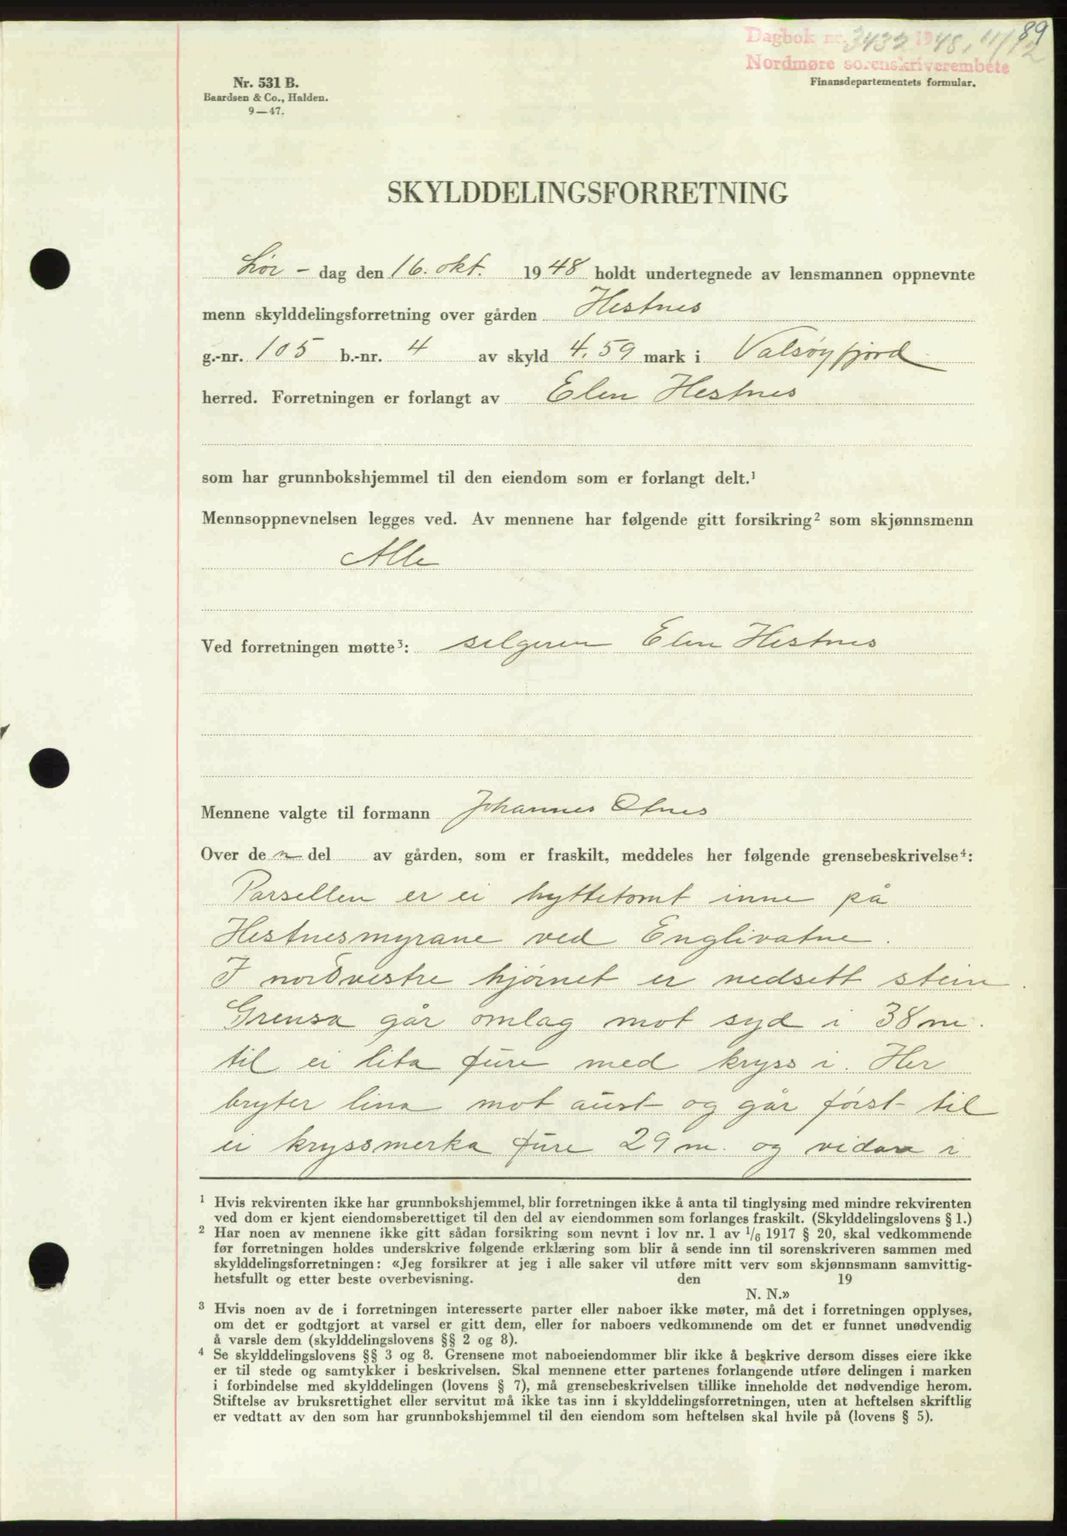 89
Dagbok nr. 3432 1948, 11/12
Nordmøre sorenskriverembete
Nr. 531 B.
Baardsen & Co., Halden.
9—47.
Finansdepartementets formular.
SKYLDDELINGSFORRETNING
Lør - dag den 16. okt. 1948 holdt undertegnede av lensmannen oppnevnte
menn skylddelingsforretning over gården Hestnes
g.-nr. 105 b.-nr. 4 av skyld 4,59 mark i Valsøyfjord
herred. Forretningen er forlangt av Elen Hestnes
som har grunnbokshjemmel til den eiendom som er forlangt delt.¹
Mennsoppnevnelsen legges ved. Av mennene har følgende gitt forsikring² som skjønnsmenn
Alle
Ved forretningen møtte³: selgeren Elen Hestnes
Mennene valgte til formann Johannes Otnes
Over den del av gården, som er fraskilt, meddeles her følgende grensebeskrivelse⁴:
Parsellen er ei hyttetomt inne på
Hestnesmyrane ved Englivatne.
I nordvestre hjørnet er nedsett stein.
Grensa går omlag mot syd i 38 m.
til ei lita fure med kryss i. Her
bryter lina mot aust og går først til
ei kryssmerka fure 29 m. og vidare i
¹ Hvis rekvirenten ikke har grunnbokshjemmel, blir forretningen ikke å anta til tinglysing med mindre rekvirenten
ved dom er kjent eiendomsberettiget til den del av eiendommen som forlanges fraskilt. (Skylddelingslovens § 1.)
² Har noen av mennene ikke gitt sådan forsikring som nevnt i lov nr. 1 av 1/6 1917 § 20, skal vedkommende
før forretningen holdes underskrive følgende erklæring som blir å sende inn til sorenskriveren sammen med
skylddelingsforretningen: «Jeg forsikrer at jeg i alle saker vil utføre mitt verv som skjønnsmann samvittig-
hetsfullt og etter beste overbevisning. den 19
N. N.»
³ Hvis noen av de i forretningen interesserte parter eller naboer ikke møter, må det i forretningen opplyses,
om det er godtgjort at varsel er gitt dem, eller for naboers vedkommende om det er funnet unødvendig
å varsle dem (skylddelingslovens §§ 2 og 8).
⁴ Se skylddelingslovens §§ 3 og 8. Grensene mot naboeiendommer blir ikke å beskrive dersom disses eiere ikke
er til stede og samtykker i beskrivelsen. Skal mennene etter partenes forlangende utføre delingen i marken
i forbindelse med skylddelingen (lovens § 7), må grensebeskrivelsen tillike inneholde det nødvendige herom.
Stiftelse av bruksrettighet eller servitut må ikke tas inn i skylddelingsforretningen, uten at heftelsen skriftlig
er vedtatt av den som har grunnbokshjemmel til den eiendom som heftelsen skal hvile på (lovens § 5).